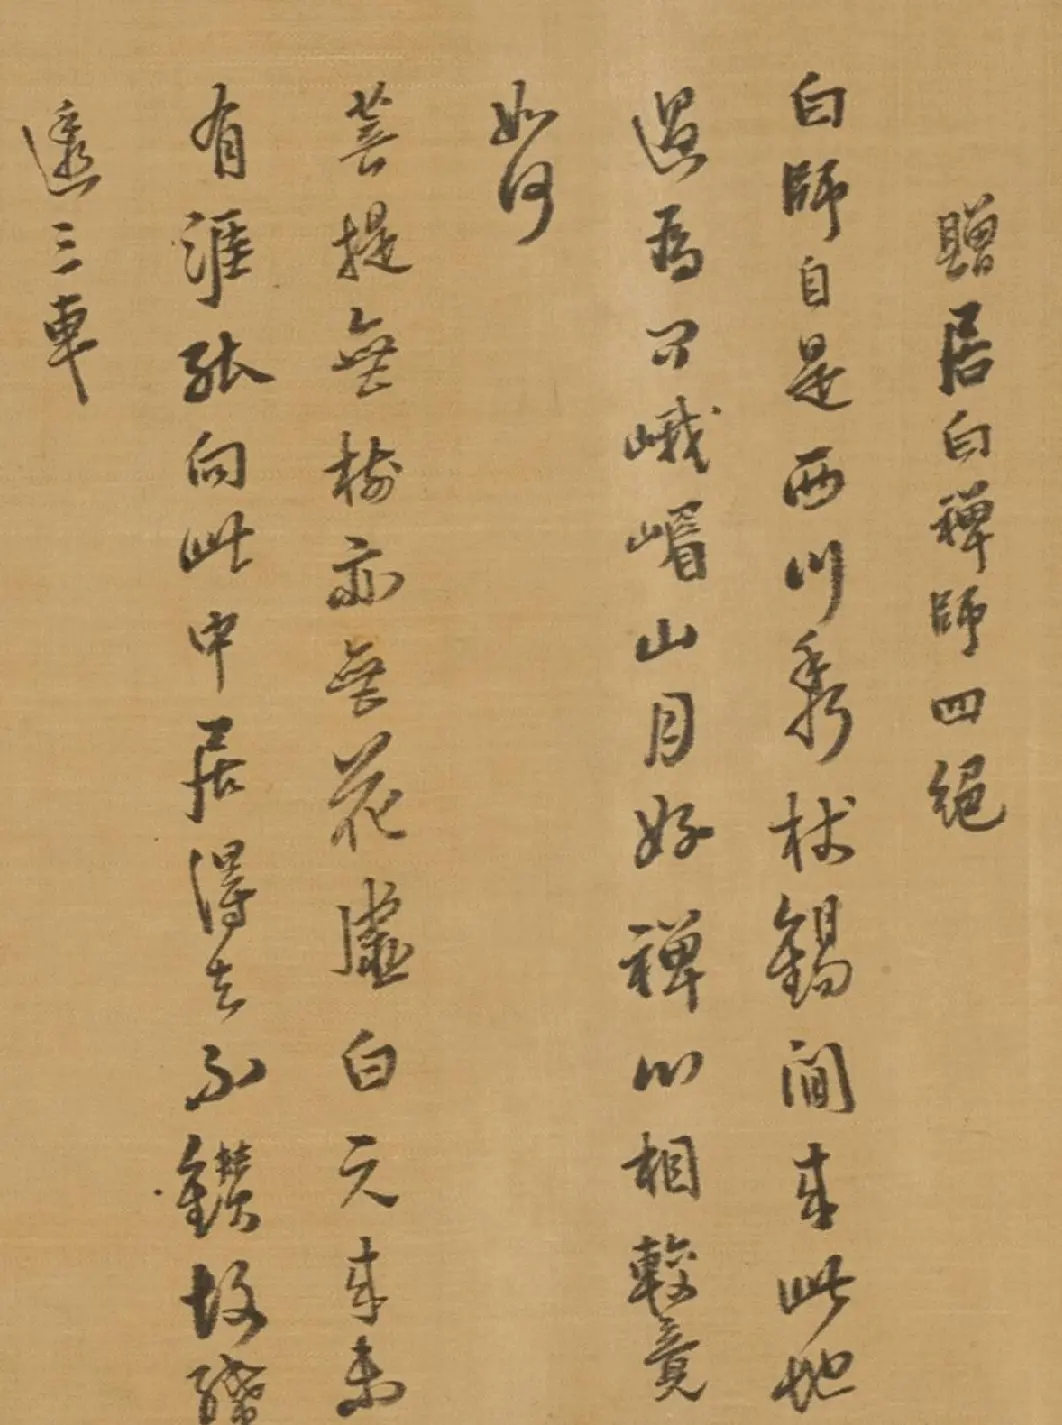 贈居白禪師四絕
白師自是西川秀杖錫閒來此地
過為問峨嵋山月好禪心相較竟
如何
菩提無樹亦無花虛白元來未
有涯能向此中居得去不鑽故紙
三車